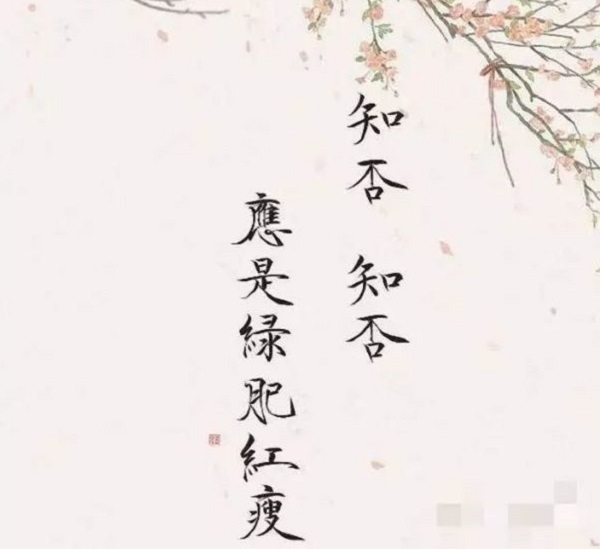 知否 知否
應是緑肥紅瘦